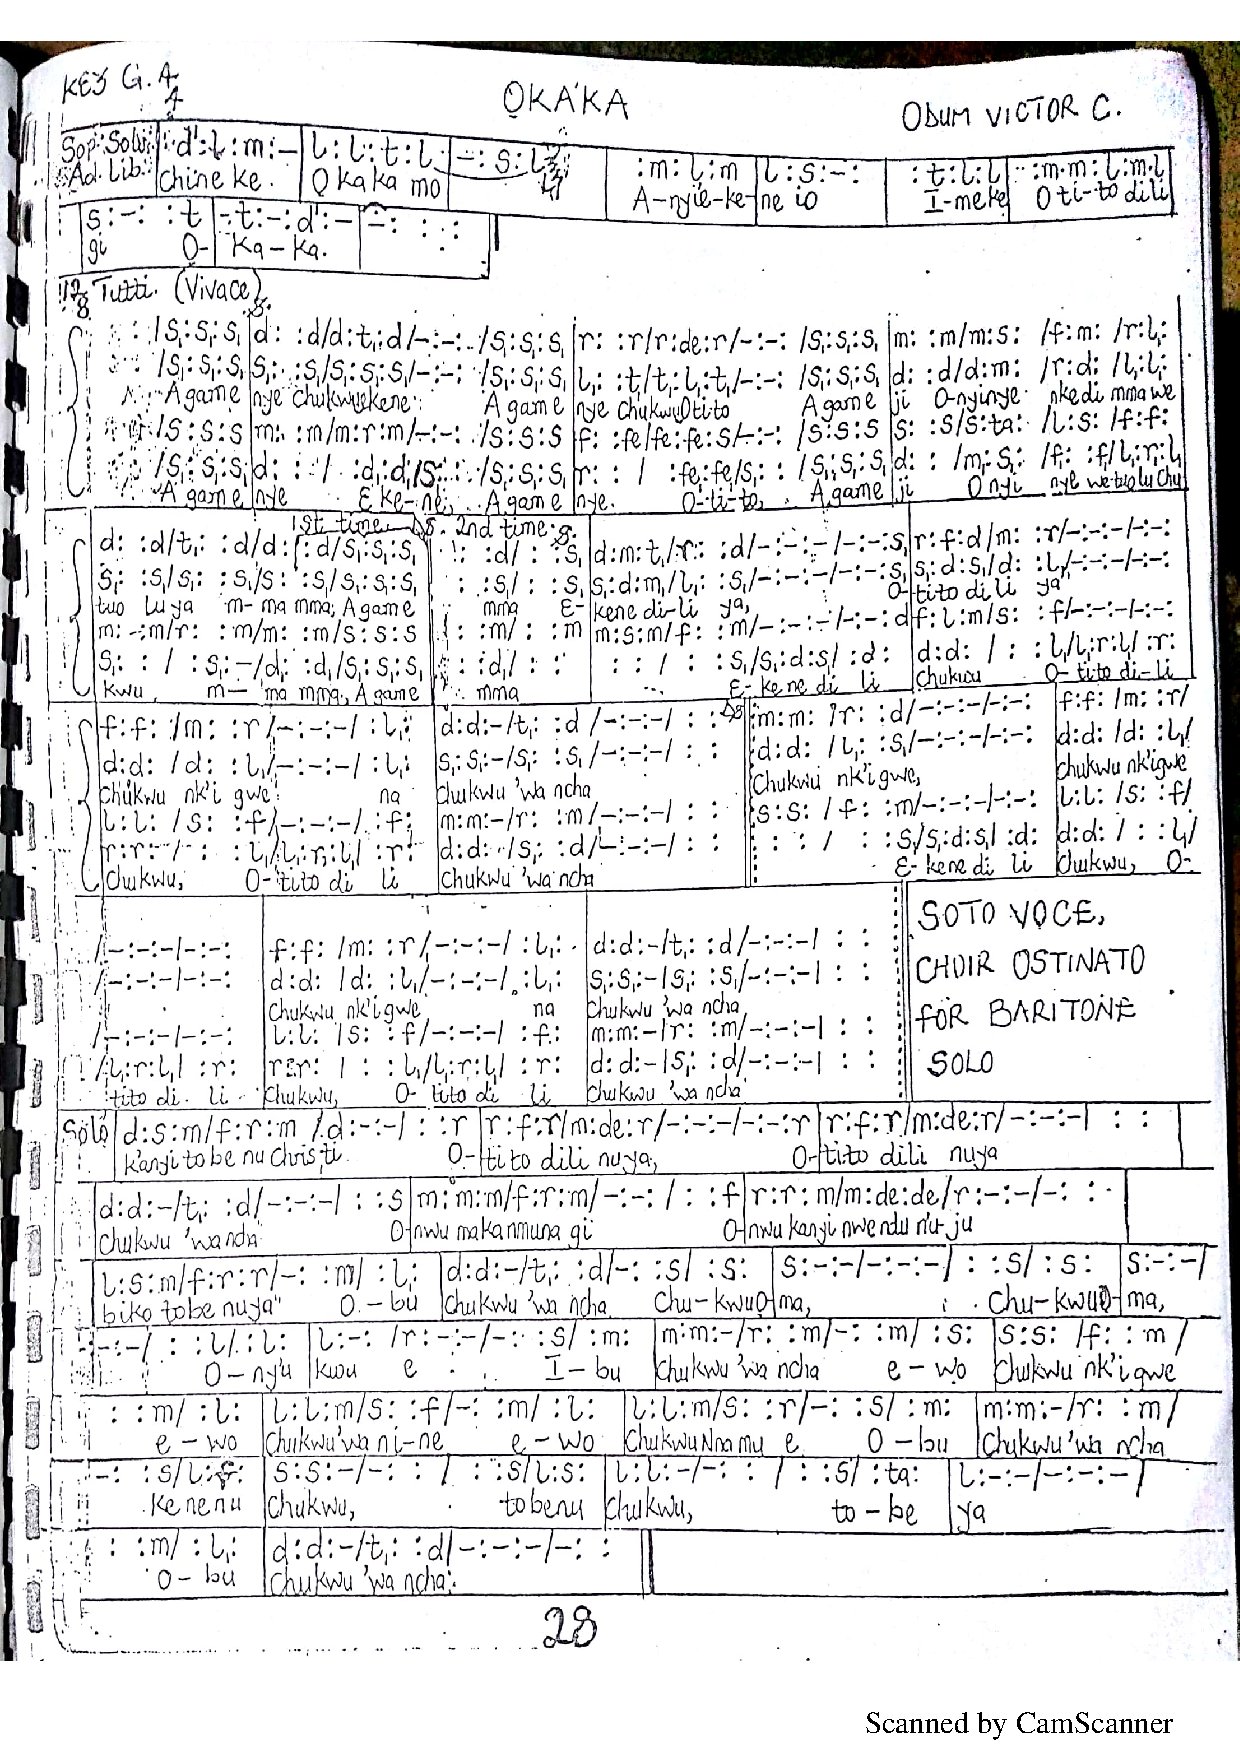 KEY G. 4/4
OKAKA
ODUM VICTOR C.
Sop. Solo Ad. Lib. :d':l:m:– | l:l:t:l | –:s:l | :m:l:m | l:s:–: | :t:l:l | :m.m:l.m.l
Chineke. Okaka mo A-nyie-ke-ne io I-meke Oti-to dili
s:–: :t | –:t:–:d':– | –: : :
gi O- Ka-ka.
12/8 Tutti. (Vivace)
: : /s₁:s₁:s₁ | d: :d/d:t₁:d/–:–: /s₁:s₁:s₁ | r: :r/r:de:r/–:–: /s₁:s₁:s₁ | m: :m/m:s: /f:m: /r:l₁:
: : /s₁:s₁:s₁ | s₁: :s₁/s₁:s₁:s₁/–:–: /s₁:s₁:s₁ | l₁: :t₁/t₁:l₁:t₁/–:–: /s₁:s₁:s₁ | d: :d/d:m: /r:d: /l₁:l₁:
A game nye Chukwu ekene A game nye Chukwu Otito A game ji O-nyinye nke di mma we
: : /s:s:s | m: :m/m:r:m/–:–: /s:s:s | f: :fe/fe:fe:s/–:–: /s:s:s | s: :s/s:ta: /l:s: /f:f:
: : /s₁:s₁:s₁ | d: : / :d:d/s: : /s₁:s₁:s₁ | r: : / :fe:fe/s: : /s₁:s₁:s₁ | d: : /m:s₁: /f₁: :f₁/l₁:r:l₁
A game nye E ke-ne, A game nye. O-ti-to, A game ji O nyi nye we tuo lu Chu
1st time DS. 2nd time
d: :d/t₁: :d/d: :d/s₁:s₁:s₁ | : :d/ : :s₁ | d:m:t₁/r: :d/–:–:–/–:–:s₁ | r:f:d/m: :r/–:–:–/–:–:
s₁: :s₁/s₁: :s₁/s: :s/s₁:s₁:s₁ | : :s/ : :s₁ | s₁:d:m₁/l₁: :s₁/–:–:–/–:–:s₁ | s₁:d:s₁/d: :l₁/–:–:–/–:–:
tuo lu ya m-ma mma, A game mma E- kene di-li ya, O- tito di li ya
m: :m/r: :m/m: :m/s:s:s | : :m/ : :m | m:s:m/f: :m/–:–:–/–:–:d | f:l:m/s: :f/–:–:–/–:–:
s₁: : / :s₁:–/d: :d/s₁:s₁:s₁ | : :d/ : : | : : / : :s₁/s₁:d:s₁/ :d: | d:d: / : :l₁/l₁:r:l₁/ :r:
kwu, m- ma mma, A game mma E- kene di li Chukwu O- tito di-li
f:f: /m: :r/–:–:–/ :l₁: | d:d:–/t₁: :d/–:–:–/ : : DS | m:m: /r: :d/–:–:–/–:–: | f:f: /m: :r/
d:d: /d: :l₁/–:–:–/ :l₁: | s₁:s₁:–/s₁: :s₁/–:–:–/ : : | d:d: /l₁: :s₁/–:–:–/–:–: | d:d: /d: :l₁/
Chukwu nk'i gwe na Chukwu 'wa ncha Chukwu nk'igwe, Chukwu nk'igwe
l:l: /s: :f/–:–:–/ :f: | m:m:–/r: :m/–:–:–/ : : | s:s: /f: :m/–:–:–/–:–: | l:l: /s: :f/
r:r: / : :l₁/l₁:r:l₁/ :r: | d:d: /s₁: :d/–:–:–/ : : | : : / : :s₁/s₁:d:s₁/ :d: | d:d: / : :l₁/
Chukwu, O-tito di li Chukwu 'wa ncha E- kene di li Chukwu, O-
/–:–:–/–:–: | f:f: /m: :r/–:–:–/ :l₁: | d:d:–/t₁: :d/–:–:–/ : :
/–:–:–/–:–: | d:d: /d: :l₁/–:–:–/ :l₁: | s₁:s₁:–/s₁: :s₁/–:–:–/ : :
Chukwu nk'igwe na Chukwu 'wa ncha
/–:–:–/–:–: | l:l: /s: :f/–:–:–/ :f: | m:m:–/r: :m/–:–:–/ : :
/l₁:r:l₁/ :r: | r:r: / : :l₁/l₁:r:l₁/ :r: | d:d:–/s₁: :d/–:–:–/ : :
tito di- li Chukwu, O- tito di li Chukwu 'wa ncha
SOTO VOCE,
CHOIR OSTINATO
FOR BARITONE
SOLO
Solo | d:s:m/f:r:m /d:–:–/ : :r | r:f:r/m:de:r/–:–:–/–:–:r | r:f:r/m:de:r/–:–:–/ : :
Kanyi to be nu Christi O- tito dili nuya, O-tito dili nuya
d:d:–/t₁: :d/–:–:–/ : :s | m:m:m/f:r:m/–:–: / : :f | r:r:m/m:de:de/r:–:–/–: :
Chukwu 'wa ncha O-nwu makanmuna gi O-nwu kanyi nwe ndu n'u-ju
l:s:m/f:r:r/–: :m/ :l₁: | d:d:–/t₁: :d/–: :s/ :s: | s:–:–/–:–:–/ : :s/ :s: | s:–:–/
biko tobe nuya" O-bu Chukwu 'wa ncha Chu-kwu O-ma, Chu-kwu O-ma,
–:–:–/ : :l/ :l: | l:–: /r:–:–/–: :s/ :m: | m:m:–/r: :m/–: :m/ :s: | s:s: /f: :m /
O-nyu kwu e I-bu Chukwu 'wa ncha e-wo Chukwu nk'igwe
: :m/ :l: | l:l:m/s: :f/–: :m/ :l: | l:l:m/s: :r/–: :s/ :m: | m:m:–/r: :m /
e-wo Chukwu 'wa ni-ne e-wo Chukwu Nna mu e O-bu Chukwu 'wa ncha
–: :s/l:s: | s:s:–/–: : / : :s/l:s: | l:l:–/–: : / : :s/ :ta: | l:–:–/–:–:–/
kenenu Chukwu, tobenu Chukwu, to-be ya
: :m/ :l₁: | d:d:–/t₁: :d/–:–:–/–: :
O-bu Chukwu 'wa ncha.
28
Scanned by CamScanner